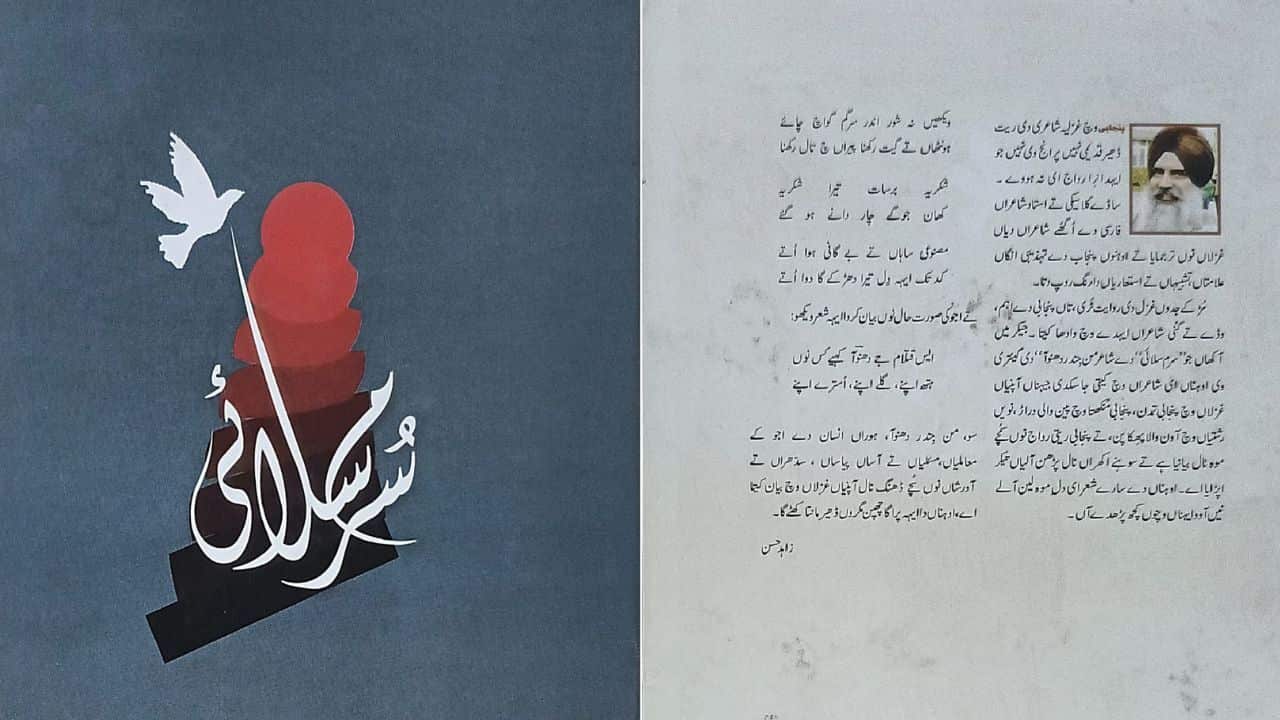 سُرم سلائی
پنجابی وچ غزلیہ شاعری دی ریت
ڈھیر قدیمی نہیں پر انج وی نہیں جو
ایہدا اِرا رواج ای نہ ہووے ۔
ساڈے کلاسیکی تے استاد شاعراں
فارسی دے اُگھے شاعراں دیاں
غزلاں نوں ترجمایا تے اوہنوں پنجاب دے تہذیبی انگاں
علامتاں، تشبیہاں تے استعاریاں دا رنگ روپ دتا۔
مُڑ کے جدوں غزل دی روایت ٹُری، تاں پنجابی دے اہم،
وڈے تے گُنی شاعراں ایہدے وچ وادھا کیتا ۔ جیکر میں
آکھاں جو ”سرم سلائی“ دے شاعر من جندر دھنوآ دی گنتری
وی اوہناں ای شاعراں وچ کیتی جا سکدی جیہناں آپنیاں
غزلاں وچ پنجابی تمدن، پنجابی منکھتا وچ پین والی دراڑ، نویں
رشتیاں وچ آون والا پھکا پن، تے پنجابی ریتی رواج نوں سُچے
موہ نال بیانیا ہے تے سوہنے اکھراں نال پڑھن آلیاں تیکر
اپڑایا اے۔ اوہناں دے سارے شعر ای دل موہ لین آلے
نیں آؤ ایہناں وچوں کجھ پڑھدے آں ۔
ویکھیں نہ شور اندر سرگم گواچ جائے
ہونٹھاں تے گیت رکھنا پیراں چ تال رکھنا
شکریہ برسات تیرا شکریہ
کھان جوگے چار دانے ہو گئے
مصنوعی ساہاں تے بے گانی ہوا اُتے
کد تک ایہہ دِل تیرا دھڑکے گا دوا اُتے
تے اجوکی صورت حال نوں بیان کردا ایہہ شعر ویکھو:
ایس قتلام جے دھنوآ کہیے کس نوں
ہتھ اپنے، گلے اپنے، اُسترے اپنے
سو، من جندر دھنوآ، ہوراں انسان دے اجو کے
معاملیاں، مسئلیاں تے آساں پیاساں ، سدھراں تے
آدرشاں نوں سُچے ڈھنگ نال آپنیاں غزلاں وچ بیان کیتا
اے، اوہناں دا ایہہ پراگا چھپن مگروں ڈھیر مانتا کھٹے گا۔
زاہد حسن